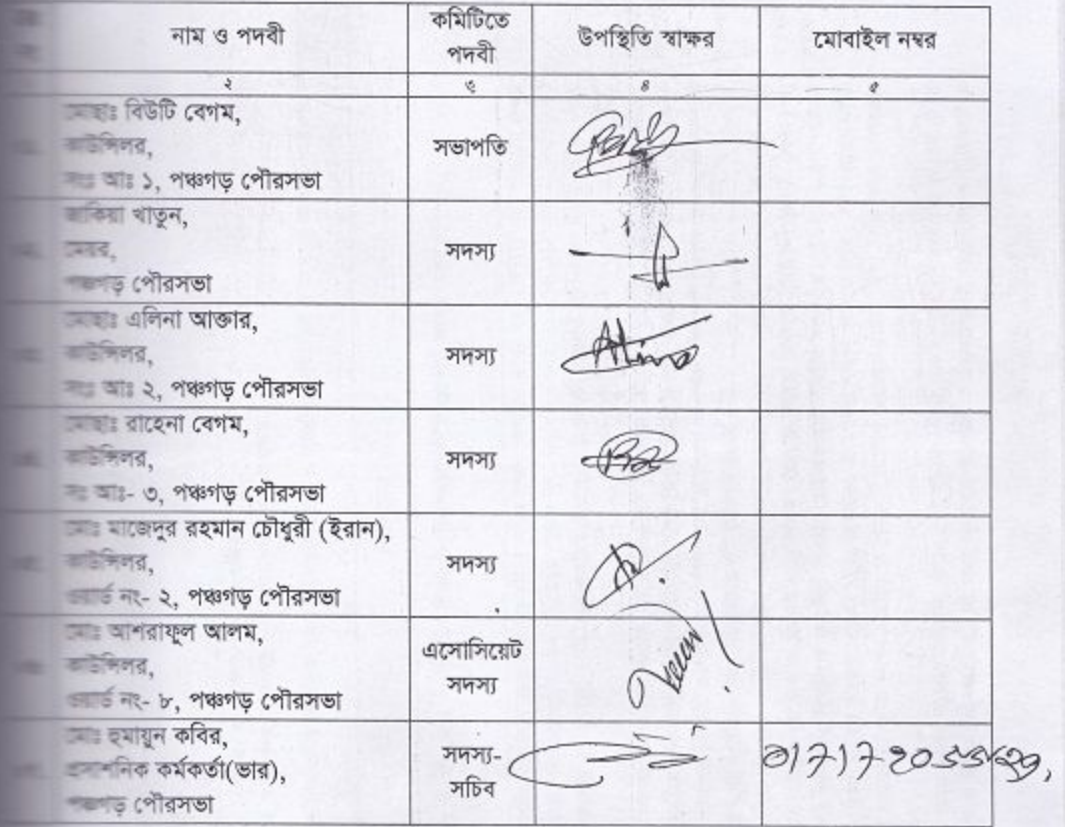 নাম ও পদবী
কমিটিতে পদবী
উপস্থিতি স্বাক্ষর
মোবাইল নম্বর
২ ৩ ৪ ৫
মোছাঃ বিউটি বেগম,
কাউন্সিলর,
সংঃ আঃ ১, পঞ্চগড় পৌরসভা
সভাপতি
জাকিয়া খাতুন,
মেয়র,
পঞ্চগড় পৌরসভা
সদস্য
মোছাঃ এলিনা আক্তার,
কাউন্সিলর,
সংঃ আঃ ২, পঞ্চগড় পৌরসভা
সদস্য
মোছাঃ রাহেনা বেগম,
কাউন্সিলর,
সঃ আঃ- ৩, পঞ্চগড় পৌরসভা
সদস্য
মোঃ মাজেদুর রহমান চৌধুরী (ইরান),
কাউন্সিলর,
ওয়ার্ড নং- ২, পঞ্চগড় পৌরসভা
সদস্য
মোঃ আশরাফুল আলম,
কাউন্সিলর,
ওয়ার্ড নং- ৮, পঞ্চগড় পৌরসভা
এসোসিয়েট
সদস্য
মোঃ হুমায়ুন কবির,
প্রসাশনিক কর্মকর্তা(ভার),
পঞ্চগড় পৌরসভা
সদস্য-
সচিব